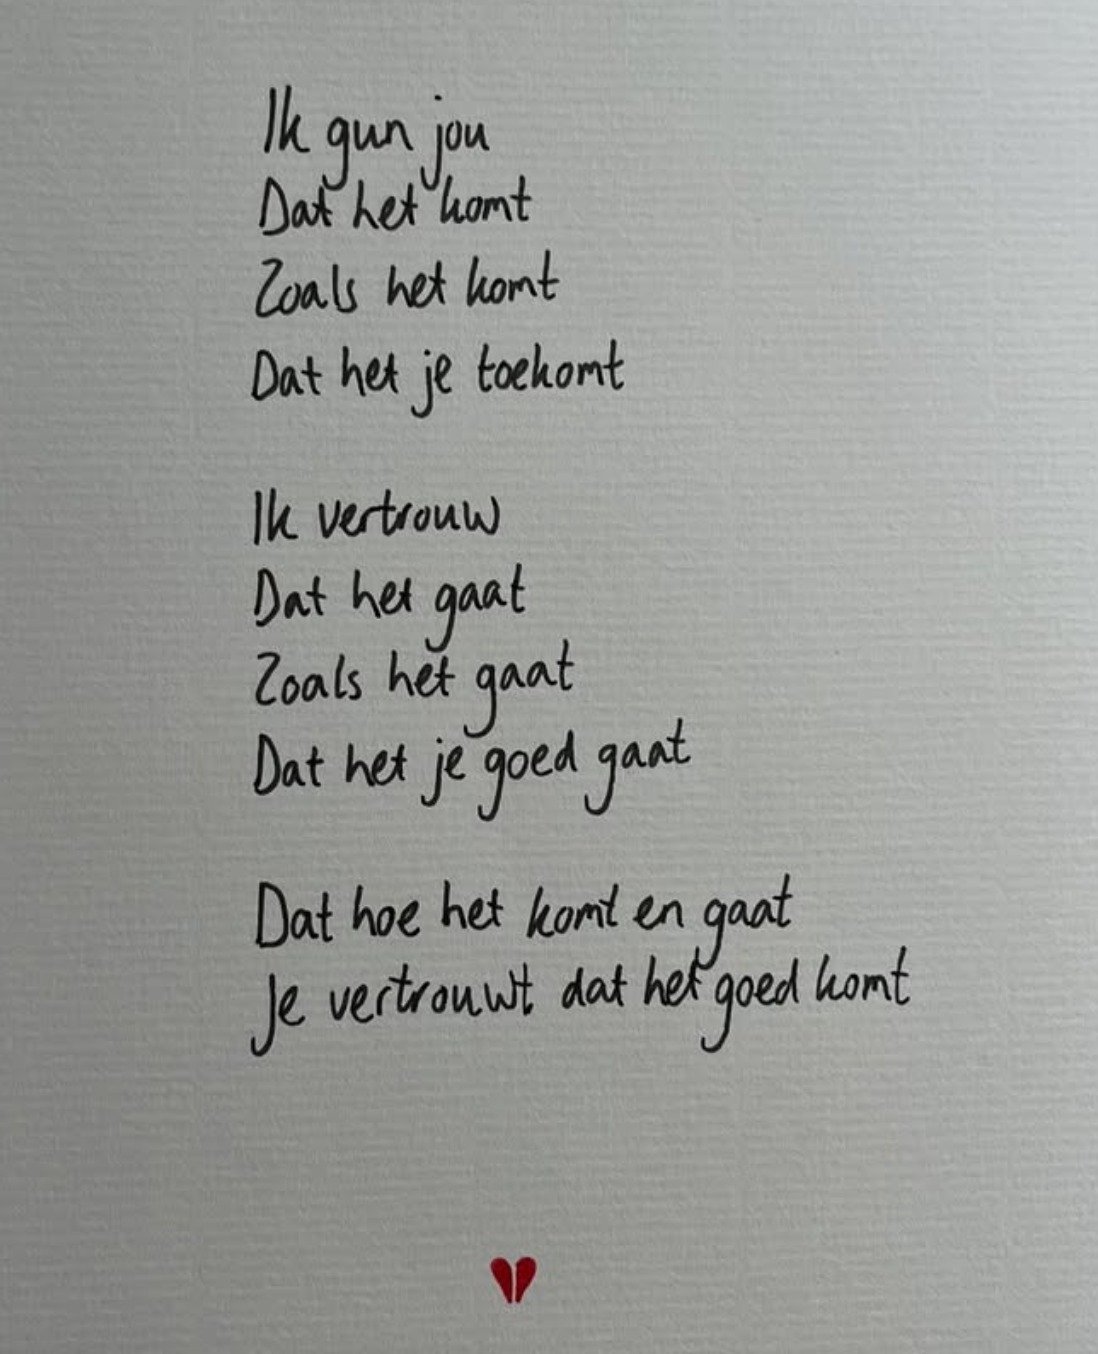 Ik gun jou
Dat het komt
Zoals het komt
Dat het je toekomt
Ik vertrouw
Dat het gaat
Zoals het gaat
Dat het je goed gaat
Dat hoe het komt en gaat
Je vertrouwt dat het goed komt